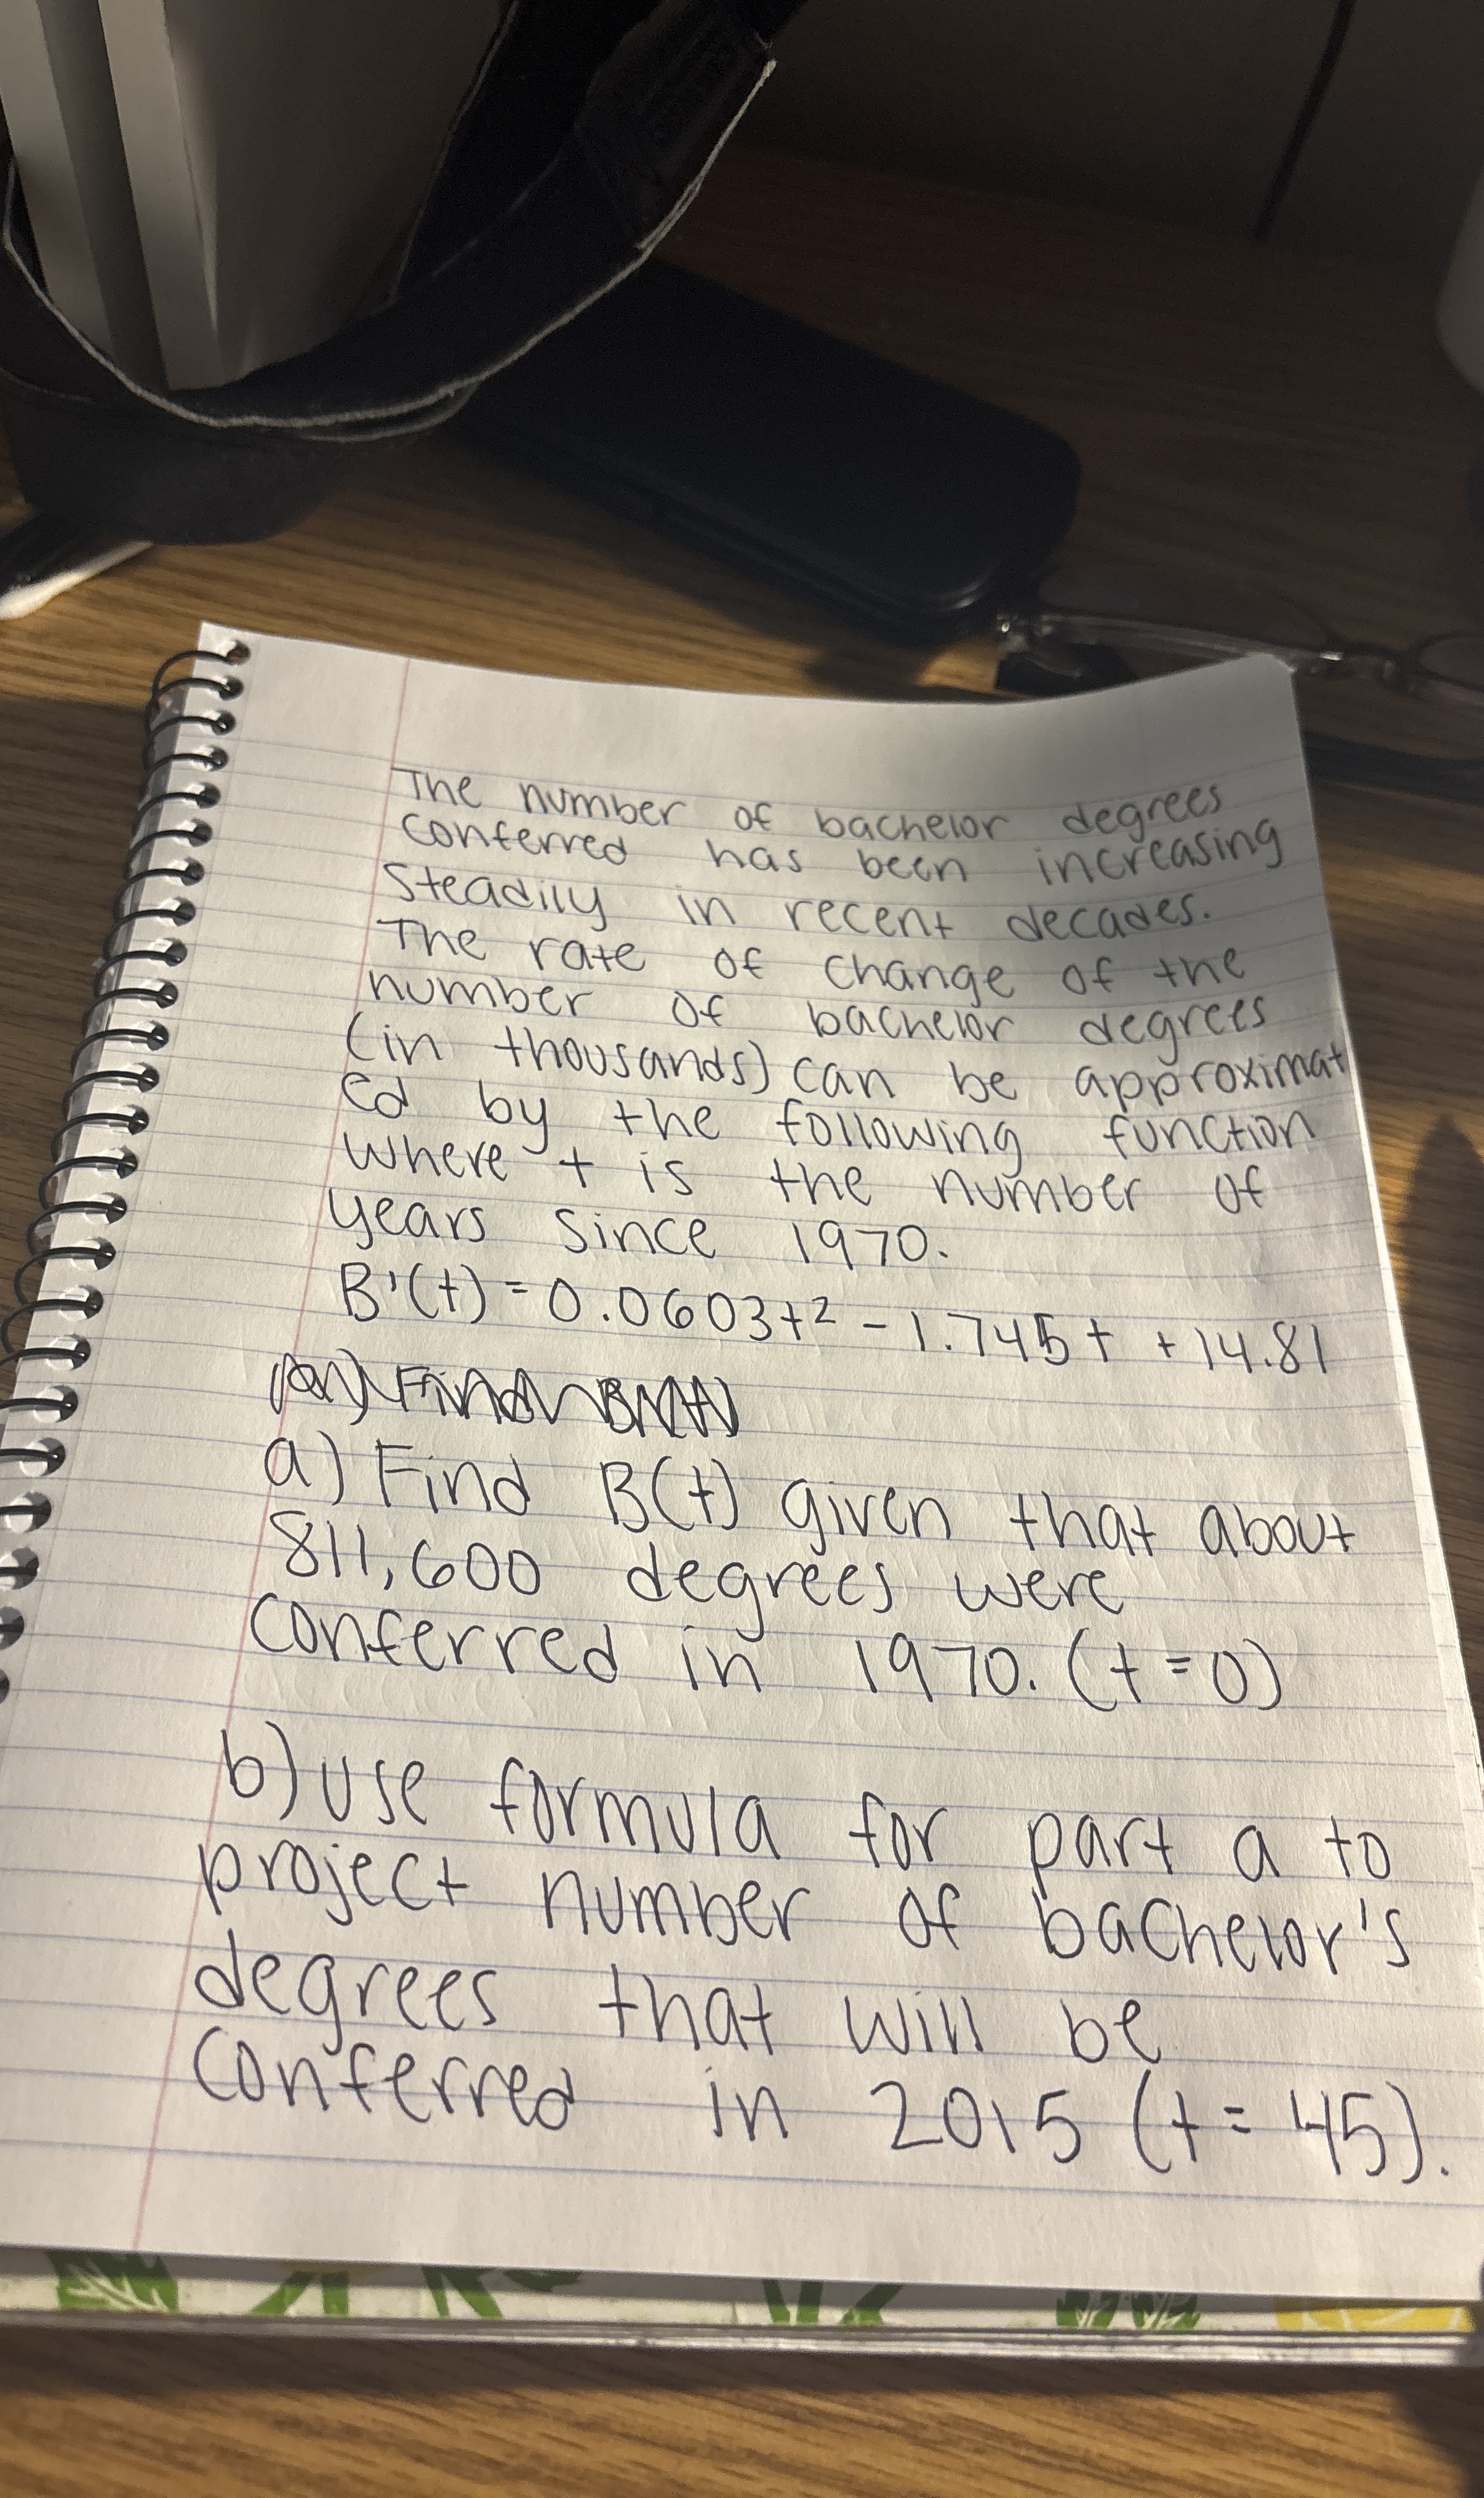 The number of bachelor degrees
conferred has been increasing
Steadily in recent decades.
The rate of change of the
number of bachelor degrees
(in thousands) can be approximat
ed by the following function
where t is the number of
years since 1970.
B'(t) = 0.0603t² - 1.745t + 14.81
a) Find B(t) given that about
811,600 degrees were
conferred in 1970. (t = 0)
b) use formula for part a to
project number of bachelor's
degrees that will be
conferred in 2015 (t = 45).